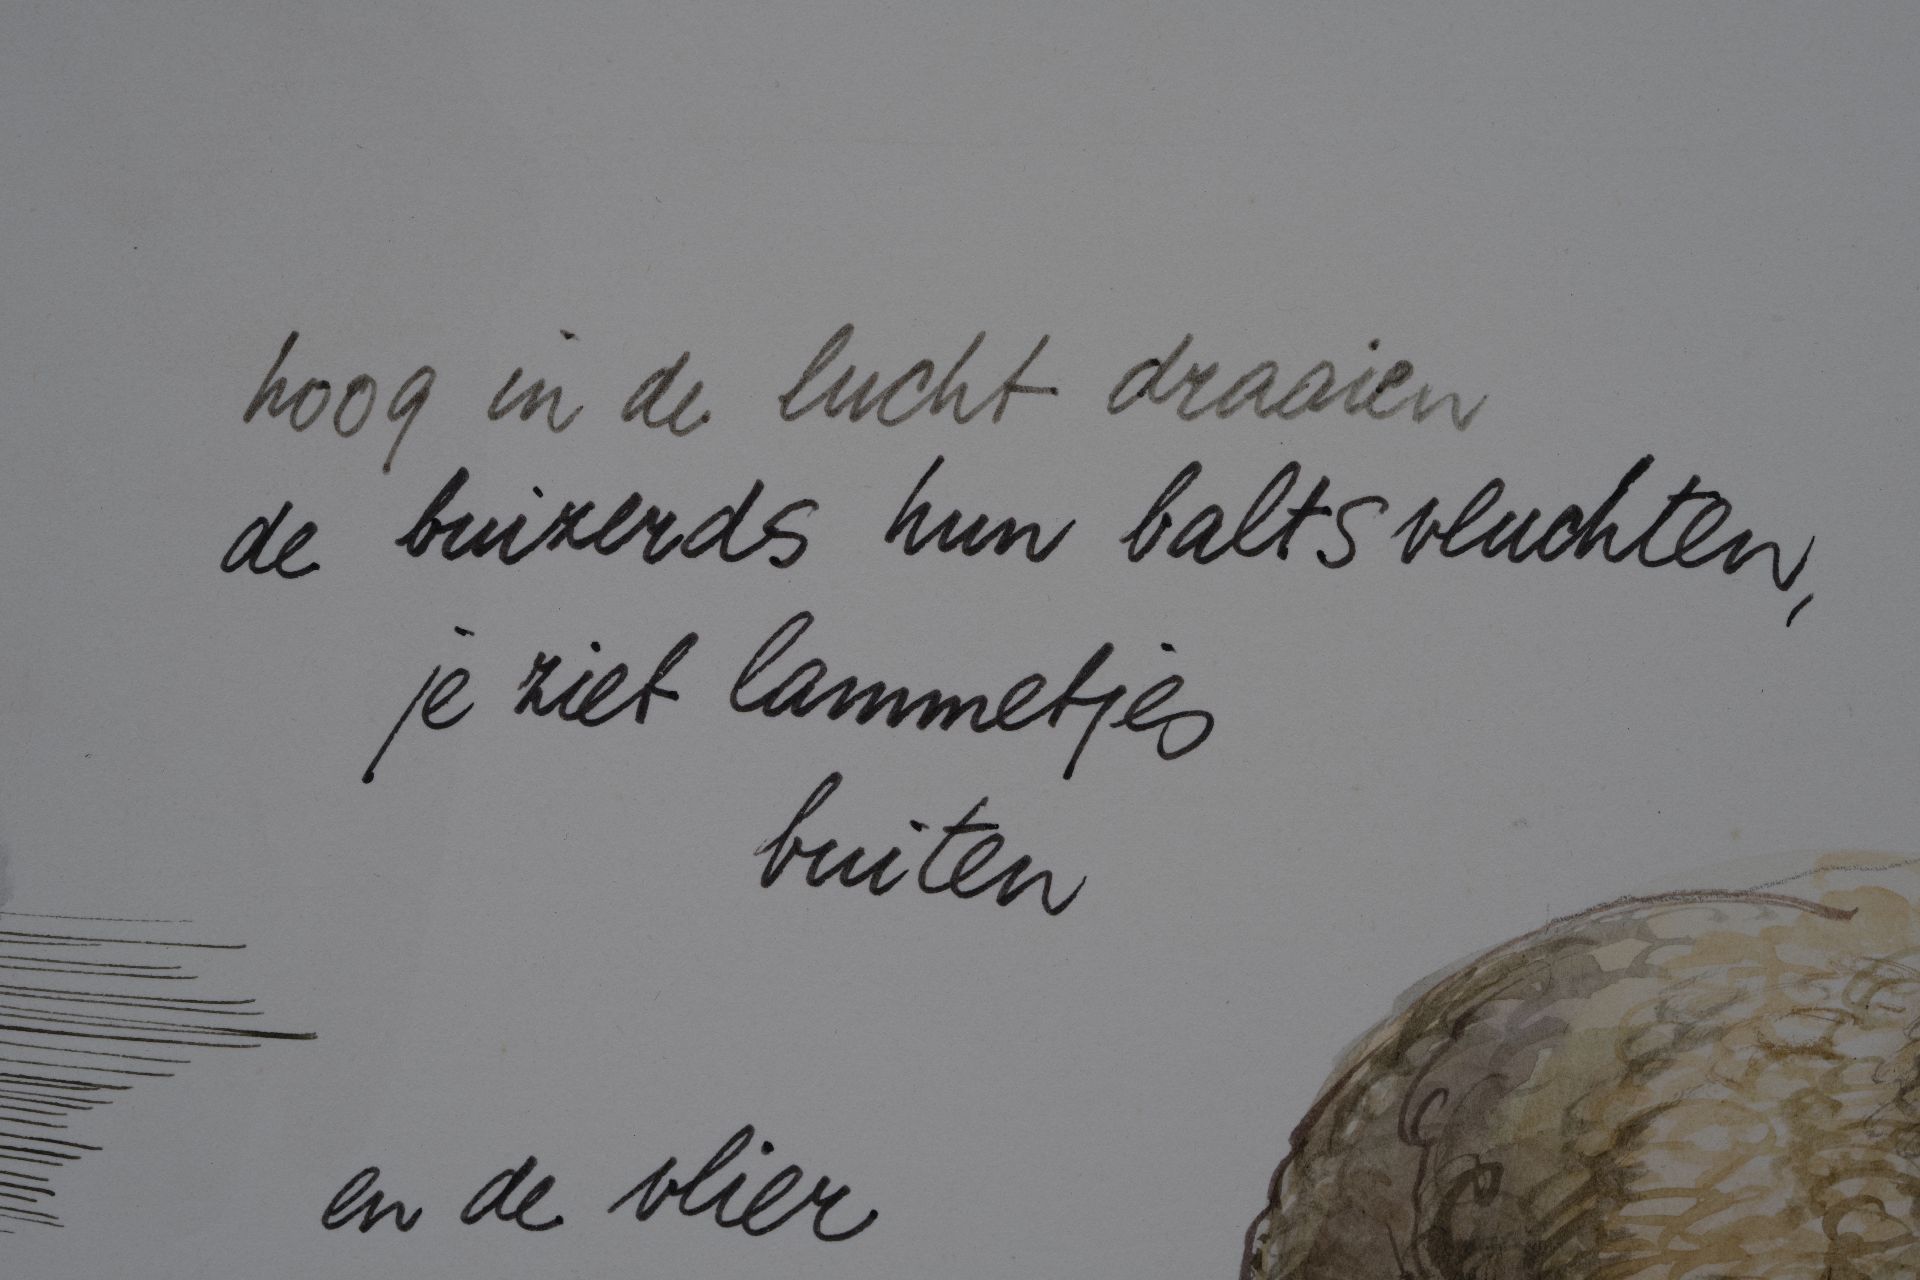 hoog in de lucht draaien
de buizerds hun baltsvluchten,
je ziet lammetjes
buiten
en de vlier